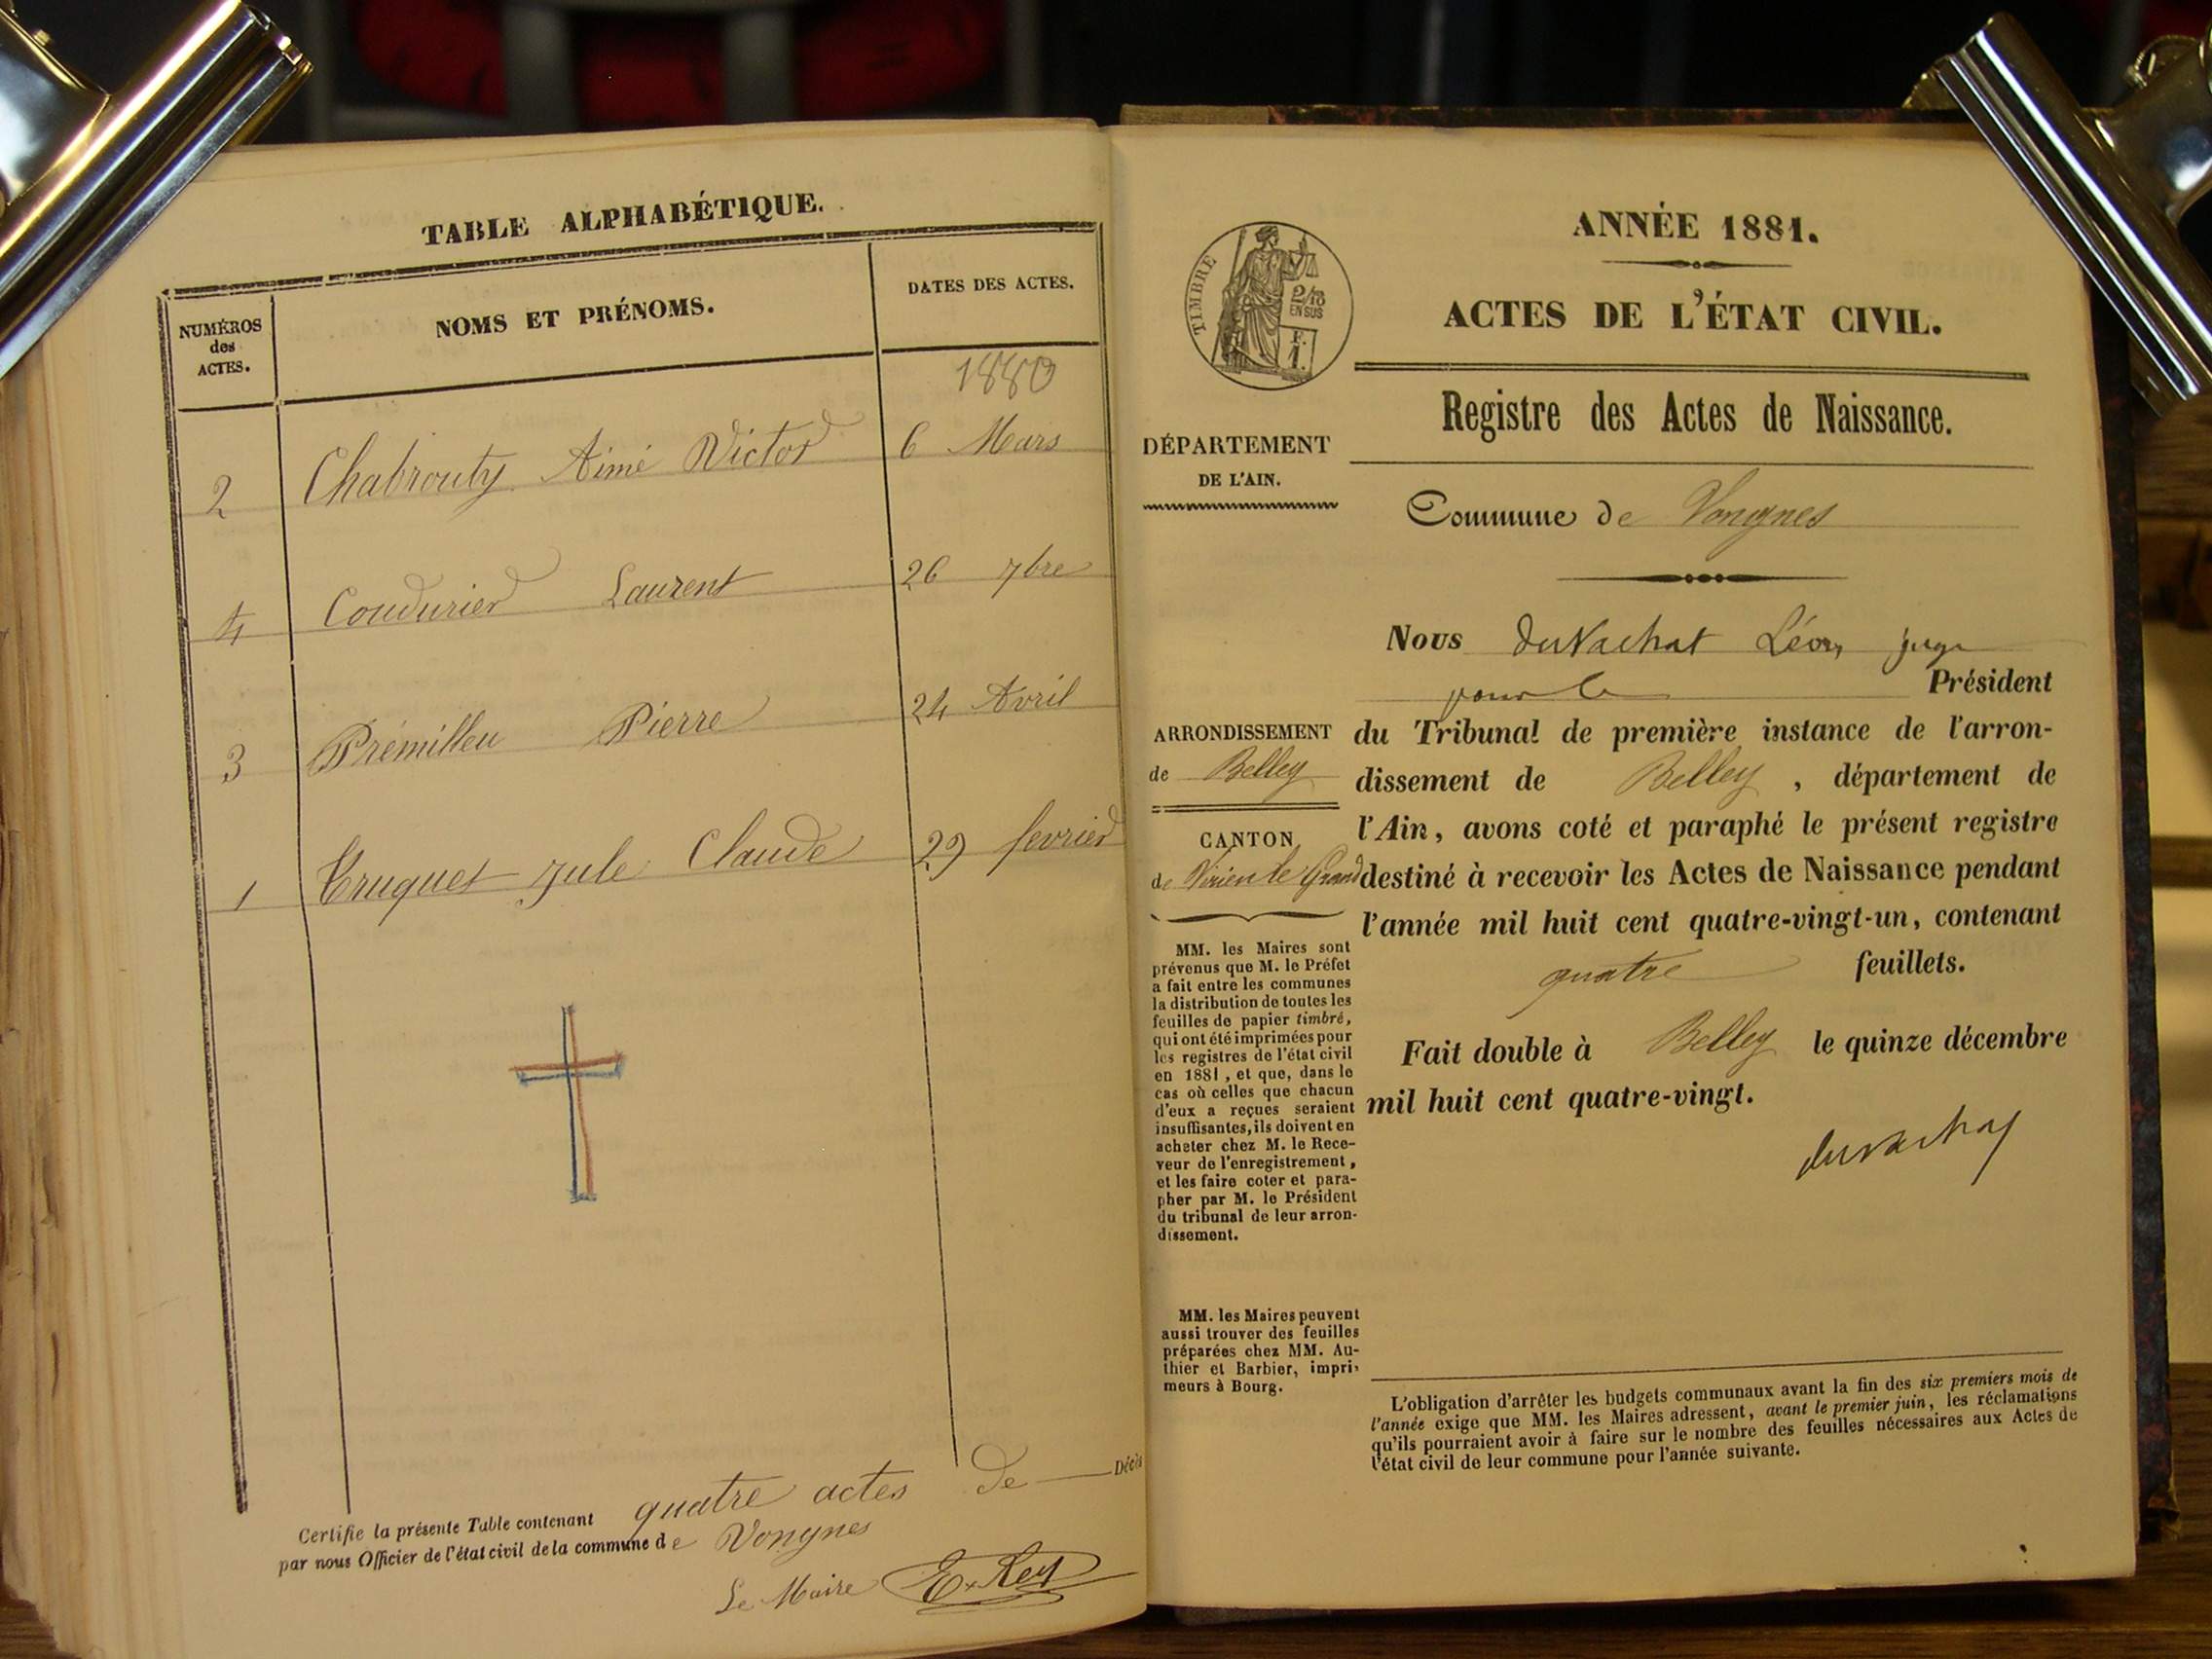 TABLE ALPHABÉTIQUE.
NUMÉROS des ACTES.
NOMS ET PRÉNOMS.
DATES DES ACTES.
1880
2 Chabrouty Aimé Victor 6 Mars
4 Coudurier Laurent 26 7bre
3 Prémilleu Pierre 24 Avril
1 Truquet Jule Claude 29 fevrier
Certifie la présente Table contenant quatre actes de Décès
par nous Officier de l'état civil de la commune de Vongnes
Le Maire E. Rey
TIMBRE
2/10
EN SUS
F.
1.
DÉPARTEMENT
DE L'AIN.
ARRONDISSEMENT
de Belley
CANTON
de Virieu le Grand
MM. les Maires sont
prévenus que M. le Préfet
a fait entre les communes
la distribution de toutes les
feuilles de papier timbré,
qui ont été imprimées pour
les registres de l'état civil
en 1881, et que, dans le
cas où celles que chacun
d'eux a reçues seraient
insuffisantes, ils doivent en
acheter chez M. le Rece-
veur de l'enregistrement,
et les faire coter et para-
pher par M. le Président
du tribunal de leur arron-
dissement.
MM. les Maires peuvent
aussi trouver des feuilles
préparées chez MM. Au-
thier et Barbier, impri-
meurs à Bourg.
ANNÉE 1881.
ACTES DE L'ÉTAT CIVIL.
Registre des Actes de Naissance.
Commune de Vongnes
Nous duVachat Léon juge
pour le Président
du Tribunal de première instance de l'arron-
dissement de Belley, département de
l'Ain, avons coté et paraphé le présent registre
destiné à recevoir les Actes de Naissance pendant
l'année mil huit cent quatre-vingt-un, contenant
quatre feuillets.
Fait double à Belley le quinze décembre
mil huit cent quatre-vingt.
duvachat
L'obligation d'arrêter les budgets communaux avant la fin des six premiers mois de
l'année exige que MM. les Maires adressent, avant le premier juin, les réclamations
qu'ils pourraient avoir à faire sur le nombre des feuilles nécessaires aux Actes de
l'état civil de leur commune pour l'année suivante.